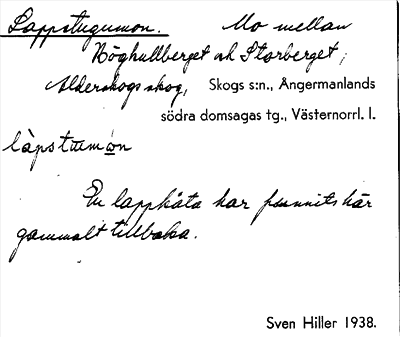 Lappstugumon. Mo mellan
Höghullberget och Storberget,
Alderskogs skog, Skogs s:n., Ångermanlands
södra domsagas tg., Västernorrl. l.
En lappkåta har funnits här
gammalt tillbaka.
Sven Hiller 1938.